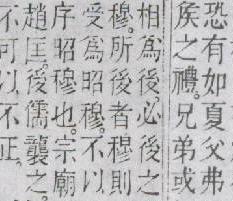 恐有如夏父弗
矦之禮。兄弟或
相爲後。必後之
穆。所後者穆則
受爲昭穆。不以
序昭穆也。宗廟
趙匡。後儒襲之
不可以不正。